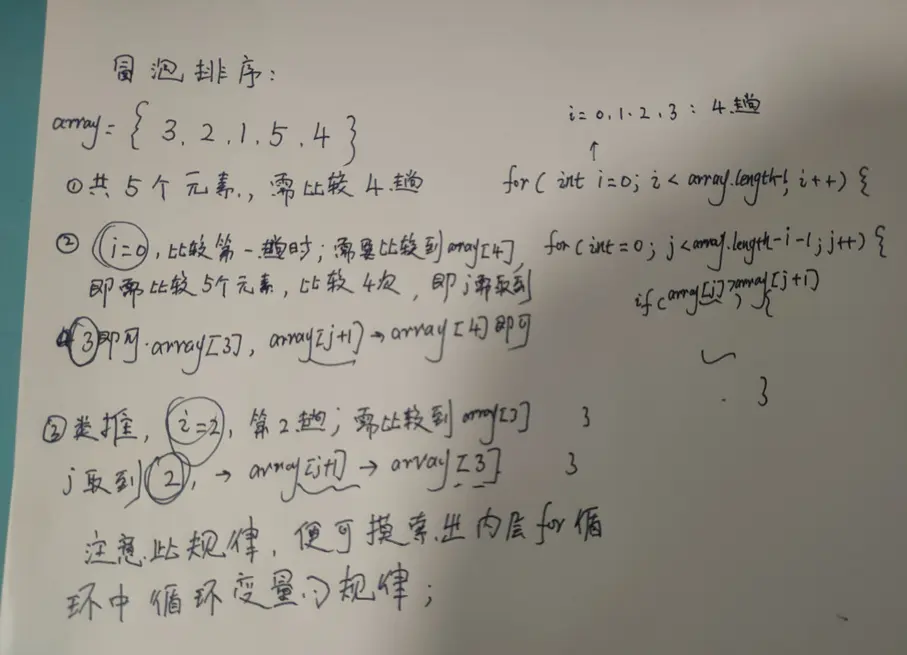 冒泡排序:
array = { 3, 2, 1, 5, 4 }
①共5个元素,需比较4趟
②i=0,比较第一趟时;需要比较到array[4],
即需比较5个元素,比较4次,即j需取到
3即可.array[3],array[j+1]→array[4]即可
③类推,i=2,第2趟;需比较到array[3]
j取到2,→array[j+1]→array[3]
注意此规律,便可摸索出内层for循
环中循环变量的规律;
i=0,1,2,3:4趟
↑
for( int i=0; i< array.length-1; i++) {
for(int=0; j<array.length-i-1;j++) {
if(array[j]>array[j+1]
{
3
3
3